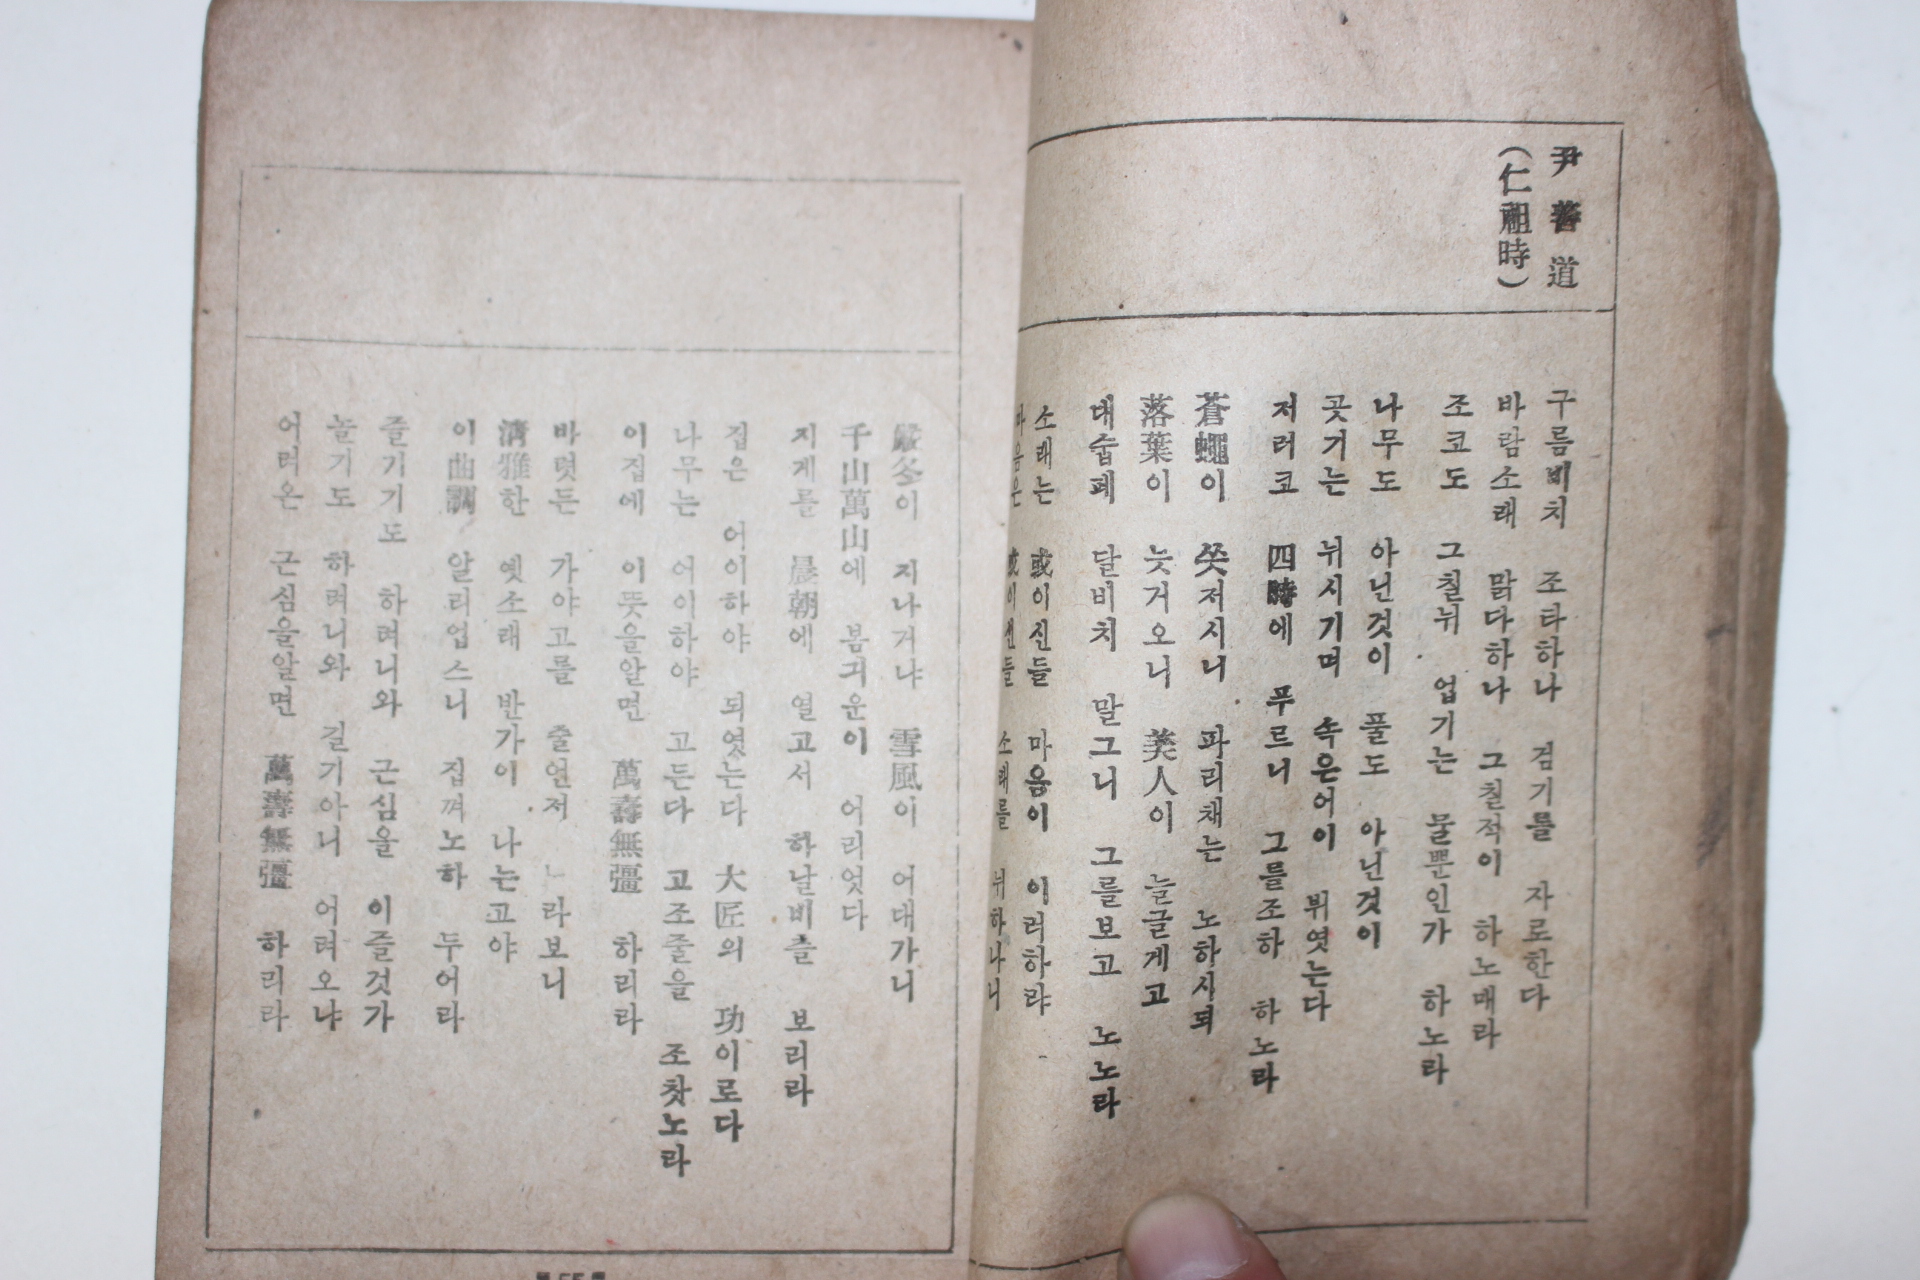 尹善道
（仁祖時）
구름비치 조타하나 검기를 자로한다
바람소래 맑다하나 그칠적이 하노매라
조코도 그칠뉘 업기는 물뿐인가 하노라
나무도 아닌것이 풀도 아닌것이
곳기는 뉘시기며 속은어이 뷔엿는다
저러코 四時에 푸르니 그를조하 하노라
蒼蠅이 쑷저시니 파리채는 노하시되
落葉이 늣거오니 美人이 늘글게고
대숩페 달비치 말그니 그를보고 노노라
소래는 或이신들 마음이 이러하랴
마음은 或이신들 소래를 뉘하나니
嚴冬이 지나거냐 雪風이 어대가니
千山萬山에 봄긔운이 어리엇다
지게를 晨朝에 열고서 하날비츨 보리라
집은 어이하야 되엿는다 大匠의 功이로다
나무는 어이하야 고든다 고조줄을 조찻노라
이집에 이뜻을알면 萬壽無彊 하리라
바렷든 가야고를 줄언저 라보니
淸雅한 옛소래 반가이 나는고야
이曲調 알리업스니 집껴노하 두어라
즐기기도 하려니와 근심을 이즐것가
놀기도 하려니와 길기아니 어려오냐
어려온 근심을알면 萬壽無彊 하리라